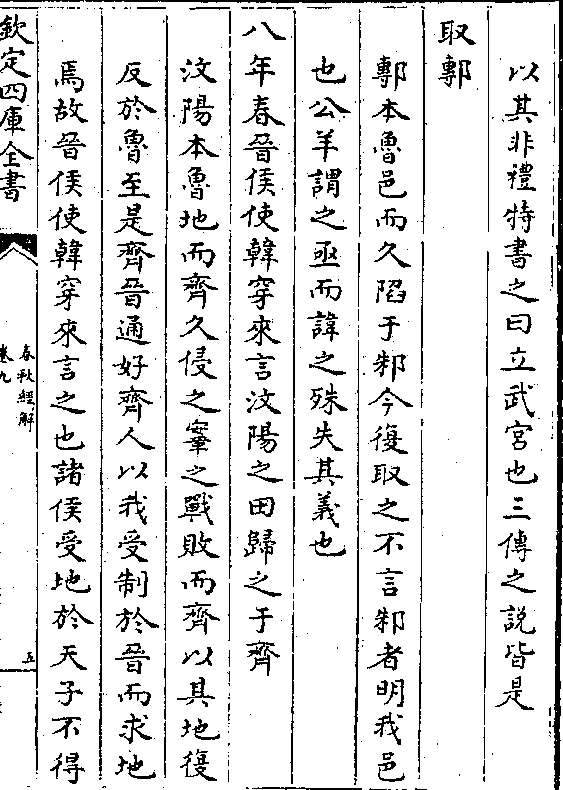 以其非禮特書之曰立武宮也三傳之說皆是
取鄟
鄟本魯邑而久陷于邾今復取之不言邾者明我邑
也公羊謂之亟而諱之殊失其義也
八年春晉侯使韓穿來言汶陽之田歸之于齊
汶陽本魯地而齊久侵之鞌之戰敗而齊以其地復
反於魯至是齊晉通好齊人以我受制於晉而求地
焉故晉侯使韓穿來言之也諸侯受地於天子不得
欽定四庫全書
春秋經解
卷九
五